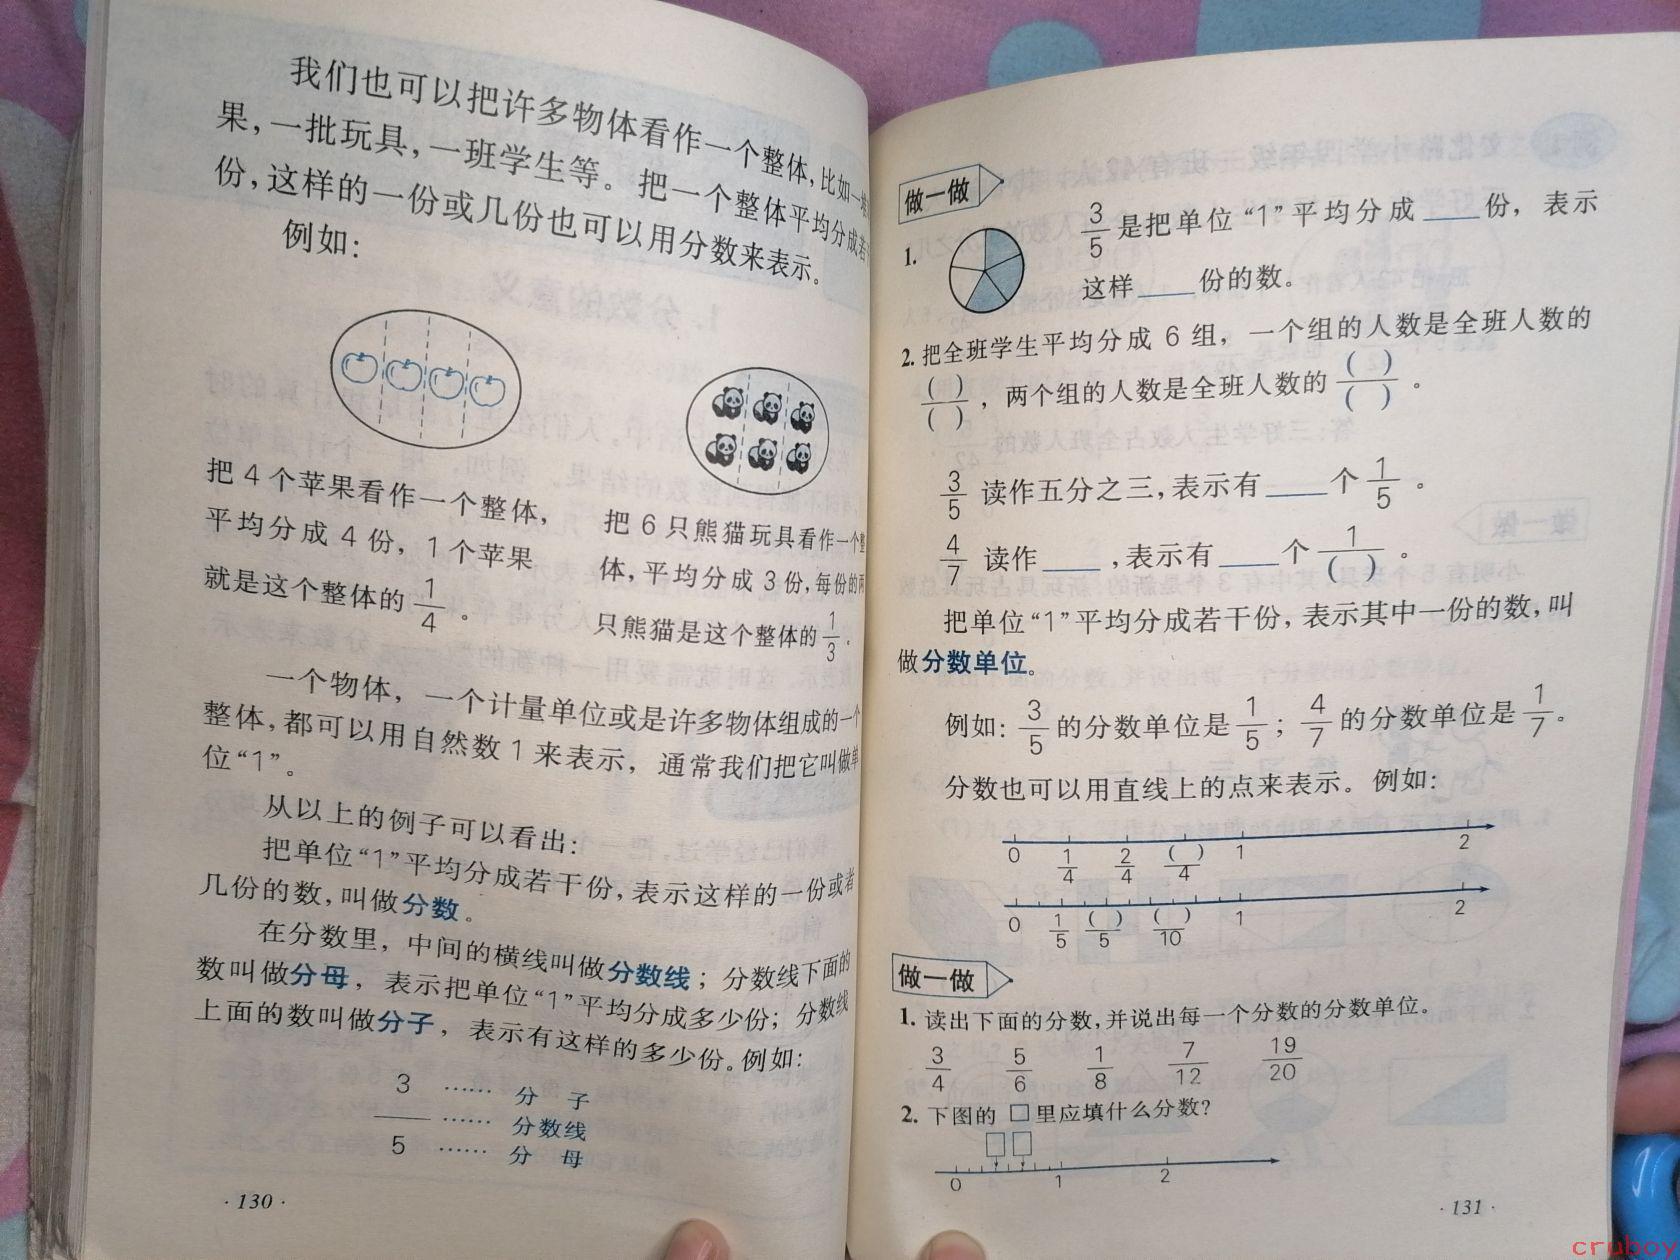 我们也可以把许多物体看作一个整体,比如一堆
果,一批玩具,一班学生等。把一个整体平均分成若
份,这样的一份或几份也可以用分数来表示。
例如:
把4个苹果看作一个整体,
平均分成4份,1个苹果
就是这个整体的1/4。
把6只熊猫玩具看作一个整
体,平均分成3份,每份的两
只熊猫是这个整体的1/3.
一个物体,一个计量单位或是许多物体组成的一个
整体,都可以用自然数1来表示,通常我们把它叫做单
位“1”。
从以上的例子可以看出:
把单位“1”平均分成若干份,表示这样的一份或者
几份的数,叫做分数。
在分数里,中间的横线叫做分数线;分数线下面的
数叫做分母,表示把单位“1”平均分成多少份;分数线
上面的数叫做分子,表示有这样的多少份。例如:
3 …… 分 子
—— …… 分数线
5 …… 分 母
·130·
做一做
1. 3/5是把单位“1”平均分成____份,表示
这样____份的数。
2. 把全班学生平均分成6组,一个组的人数是全班人数的
( )/( ),两个组的人数是全班人数的( )/( )。
3/5 读作五分之三,表示有____个1/5。
4/7 读作____,表示有____个1/( )。
把单位“1”平均分成若干份,表示其中一份的数,叫
做分数单位。
例如:3/5的分数单位是1/5;4/7的分数单位是1/7。
分数也可以用直线上的点来表示。例如:
0 1/4 2/4 ( )/4 1 2
0 1/5 ( )/5 ( )/10 1 2
做一做
1. 读出下面的分数,并说出每一个分数的分数单位。
3/4 5/6 1/8 7/12 19/20
2. 下图的□里应填什么分数?
□ □
0 1 2
·131·
cruboy